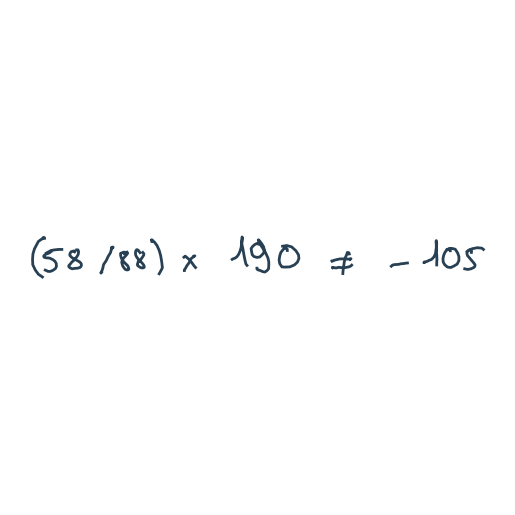 (58/88) × 190 ≠ -105